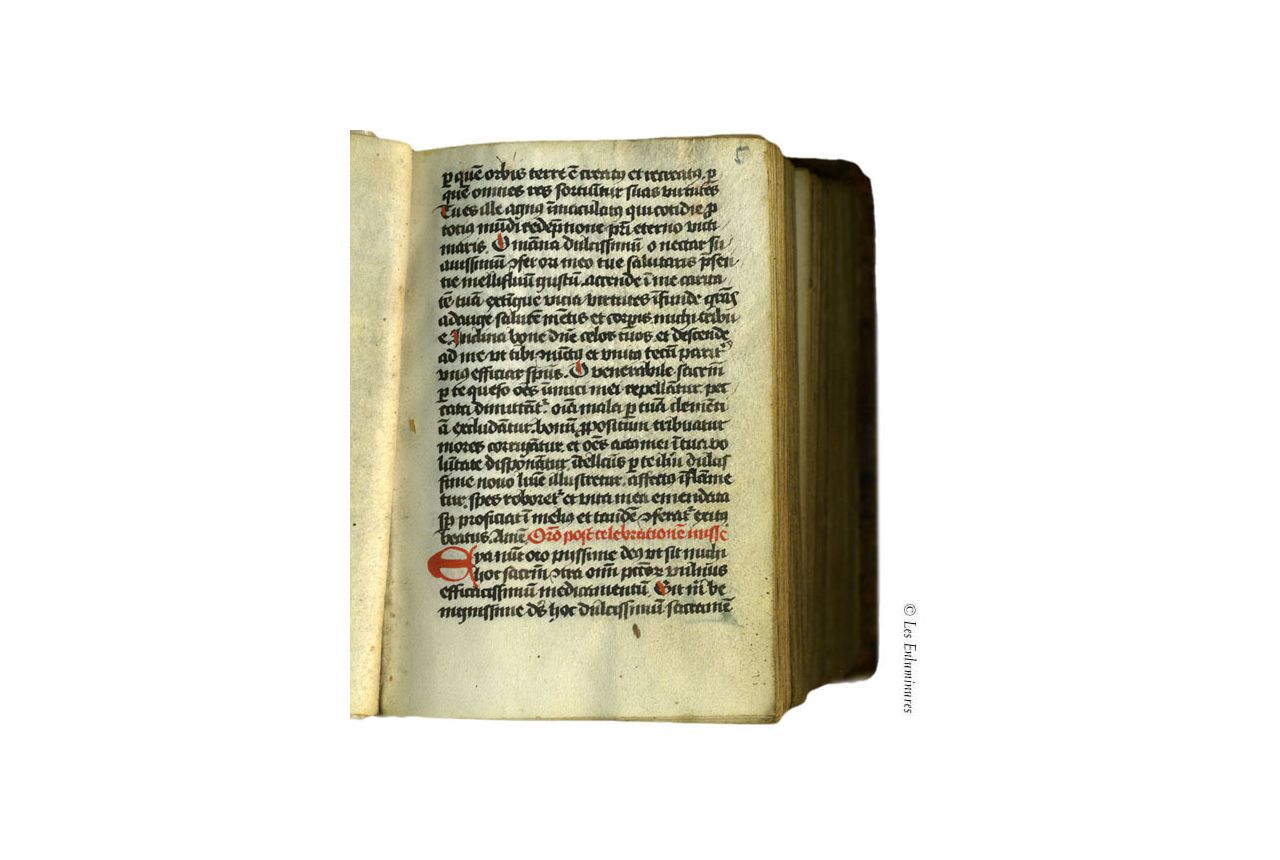 5
ꝑ quē orbis terre ē creatꝯ et recreatꝯ ꝑ
quē omnes res sortiūtur suas virtutes
Tu es ille agnꝯ īmaculatꝯ qui cotidie ꝓ
totiꝯ mūdi redēptione pr̄i eterno victi
maris. O māna dulcissimū o nectar su
auissimū ꝯfer ori meo tue salutaris p̄sen
tie mellifluū gustū. accende ī me carita
tē tuā extīgue vicia virtutes īfunde
adauge salutē mētis et corꝑis michi tribu
e. Inclina bone dn̄e celos tuos et descende
ad me vt tibi et vnitꝯ tecū parit᷑
vnꝯ efficiar sp̄us. O venerabile sacr̄m
ꝑ te queso oēs inimici mei repellātur. pec
cata dimittāt᷑. oīa mala ꝑ tuā clemēti
ā excludātur. bonū ꝓpositum tribuatur
mores corrigātur. et oēs actꝯ mei ī tua vo
lūtate dispōnātur. ītellcūs ꝑ te ihū dulcis
sime nouo lūīe illustretur. affectꝯ īflāme
tur. spes roboret᷑ et vita mea emendata
sꝑ proficiat ī meliꝯ et tandē ꝯferat᷑ exitꝯ
beatus. Amē. Orō post celebrationē misse
Eya nūc oro piissime deꝯ vt sit michi
hoc sacr̄m ꝯtra omī pctōꝝ vulnus
efficacissimū medicamentū. Sit m̄ be
nignissime ds̄ hoc dulcissimū sacramē
© Les Enluminures